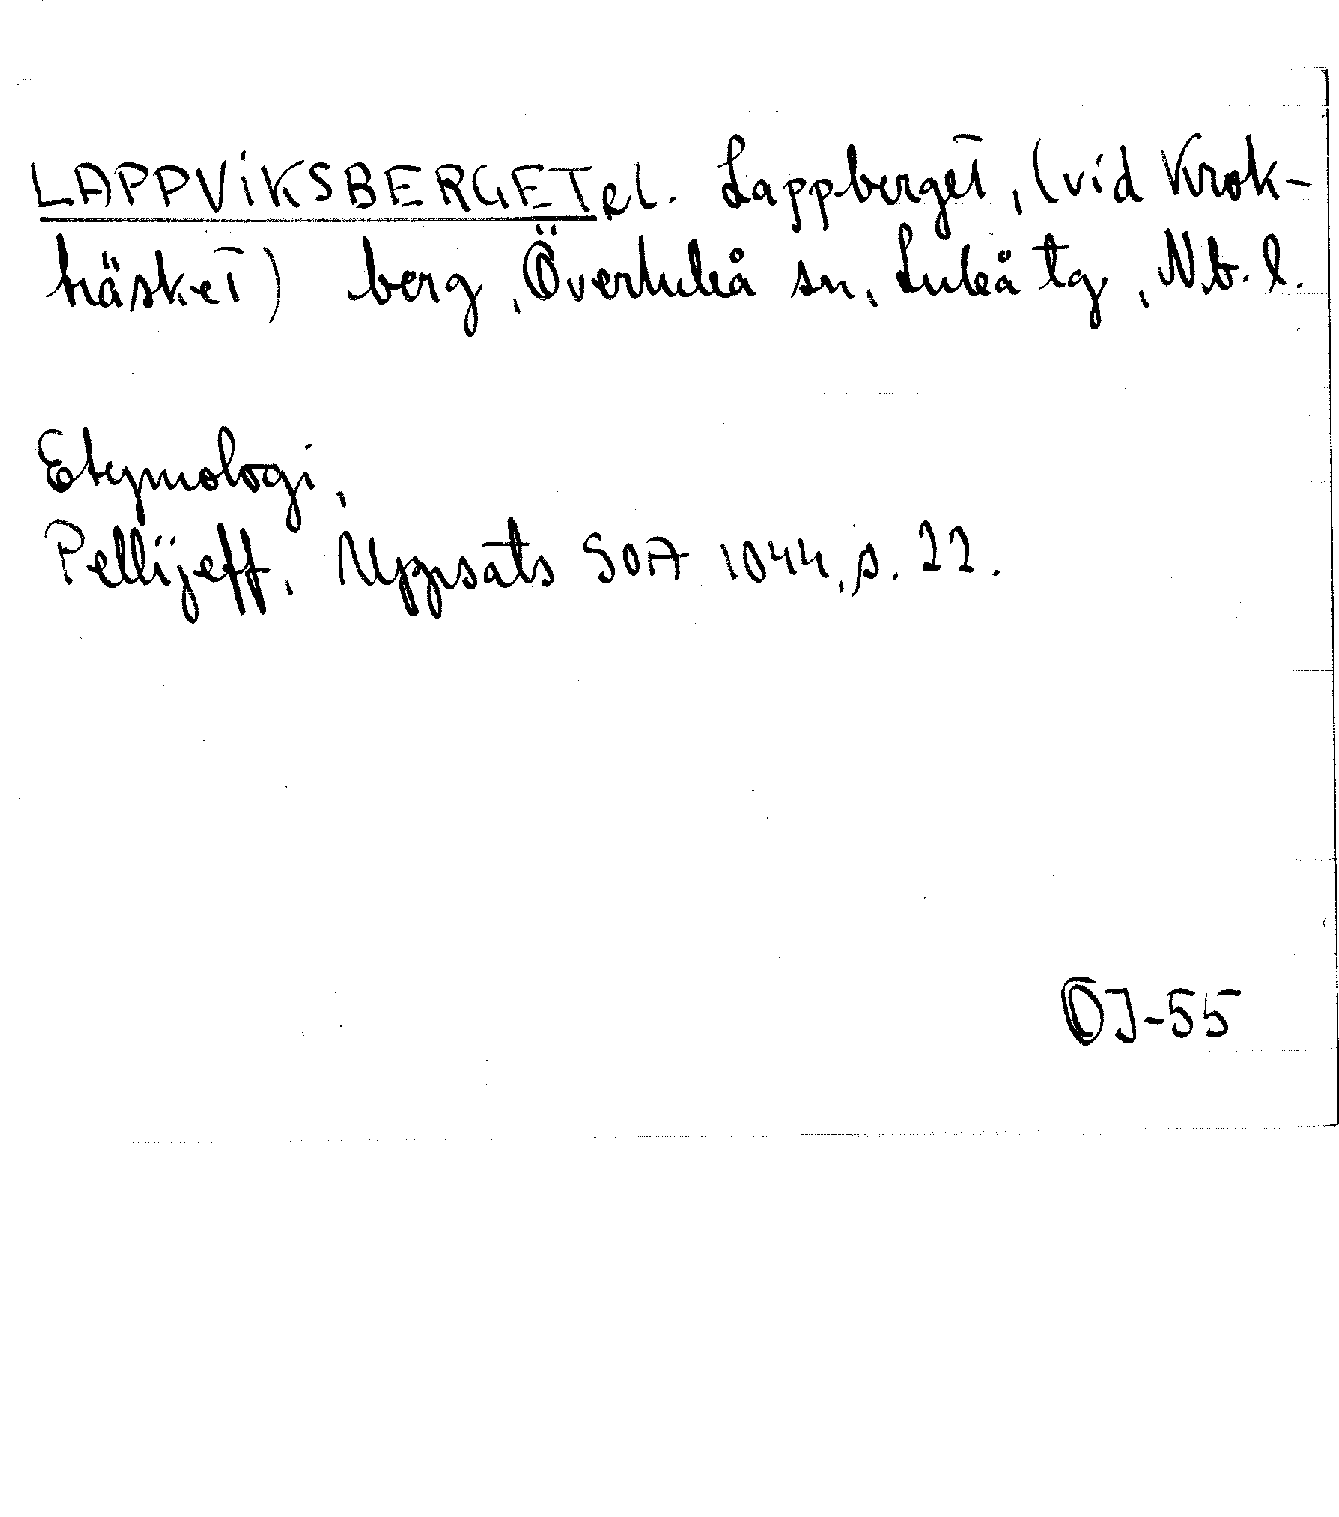 LAPPVIKSBERGET el. Lappberget, (vid Krok-
träsket) berg, Överluleå sn, Luleå tg, Nb. l.
Etymologi,
Pellijeff, Uppsats SOA 1044, s. 22.
OJ-55